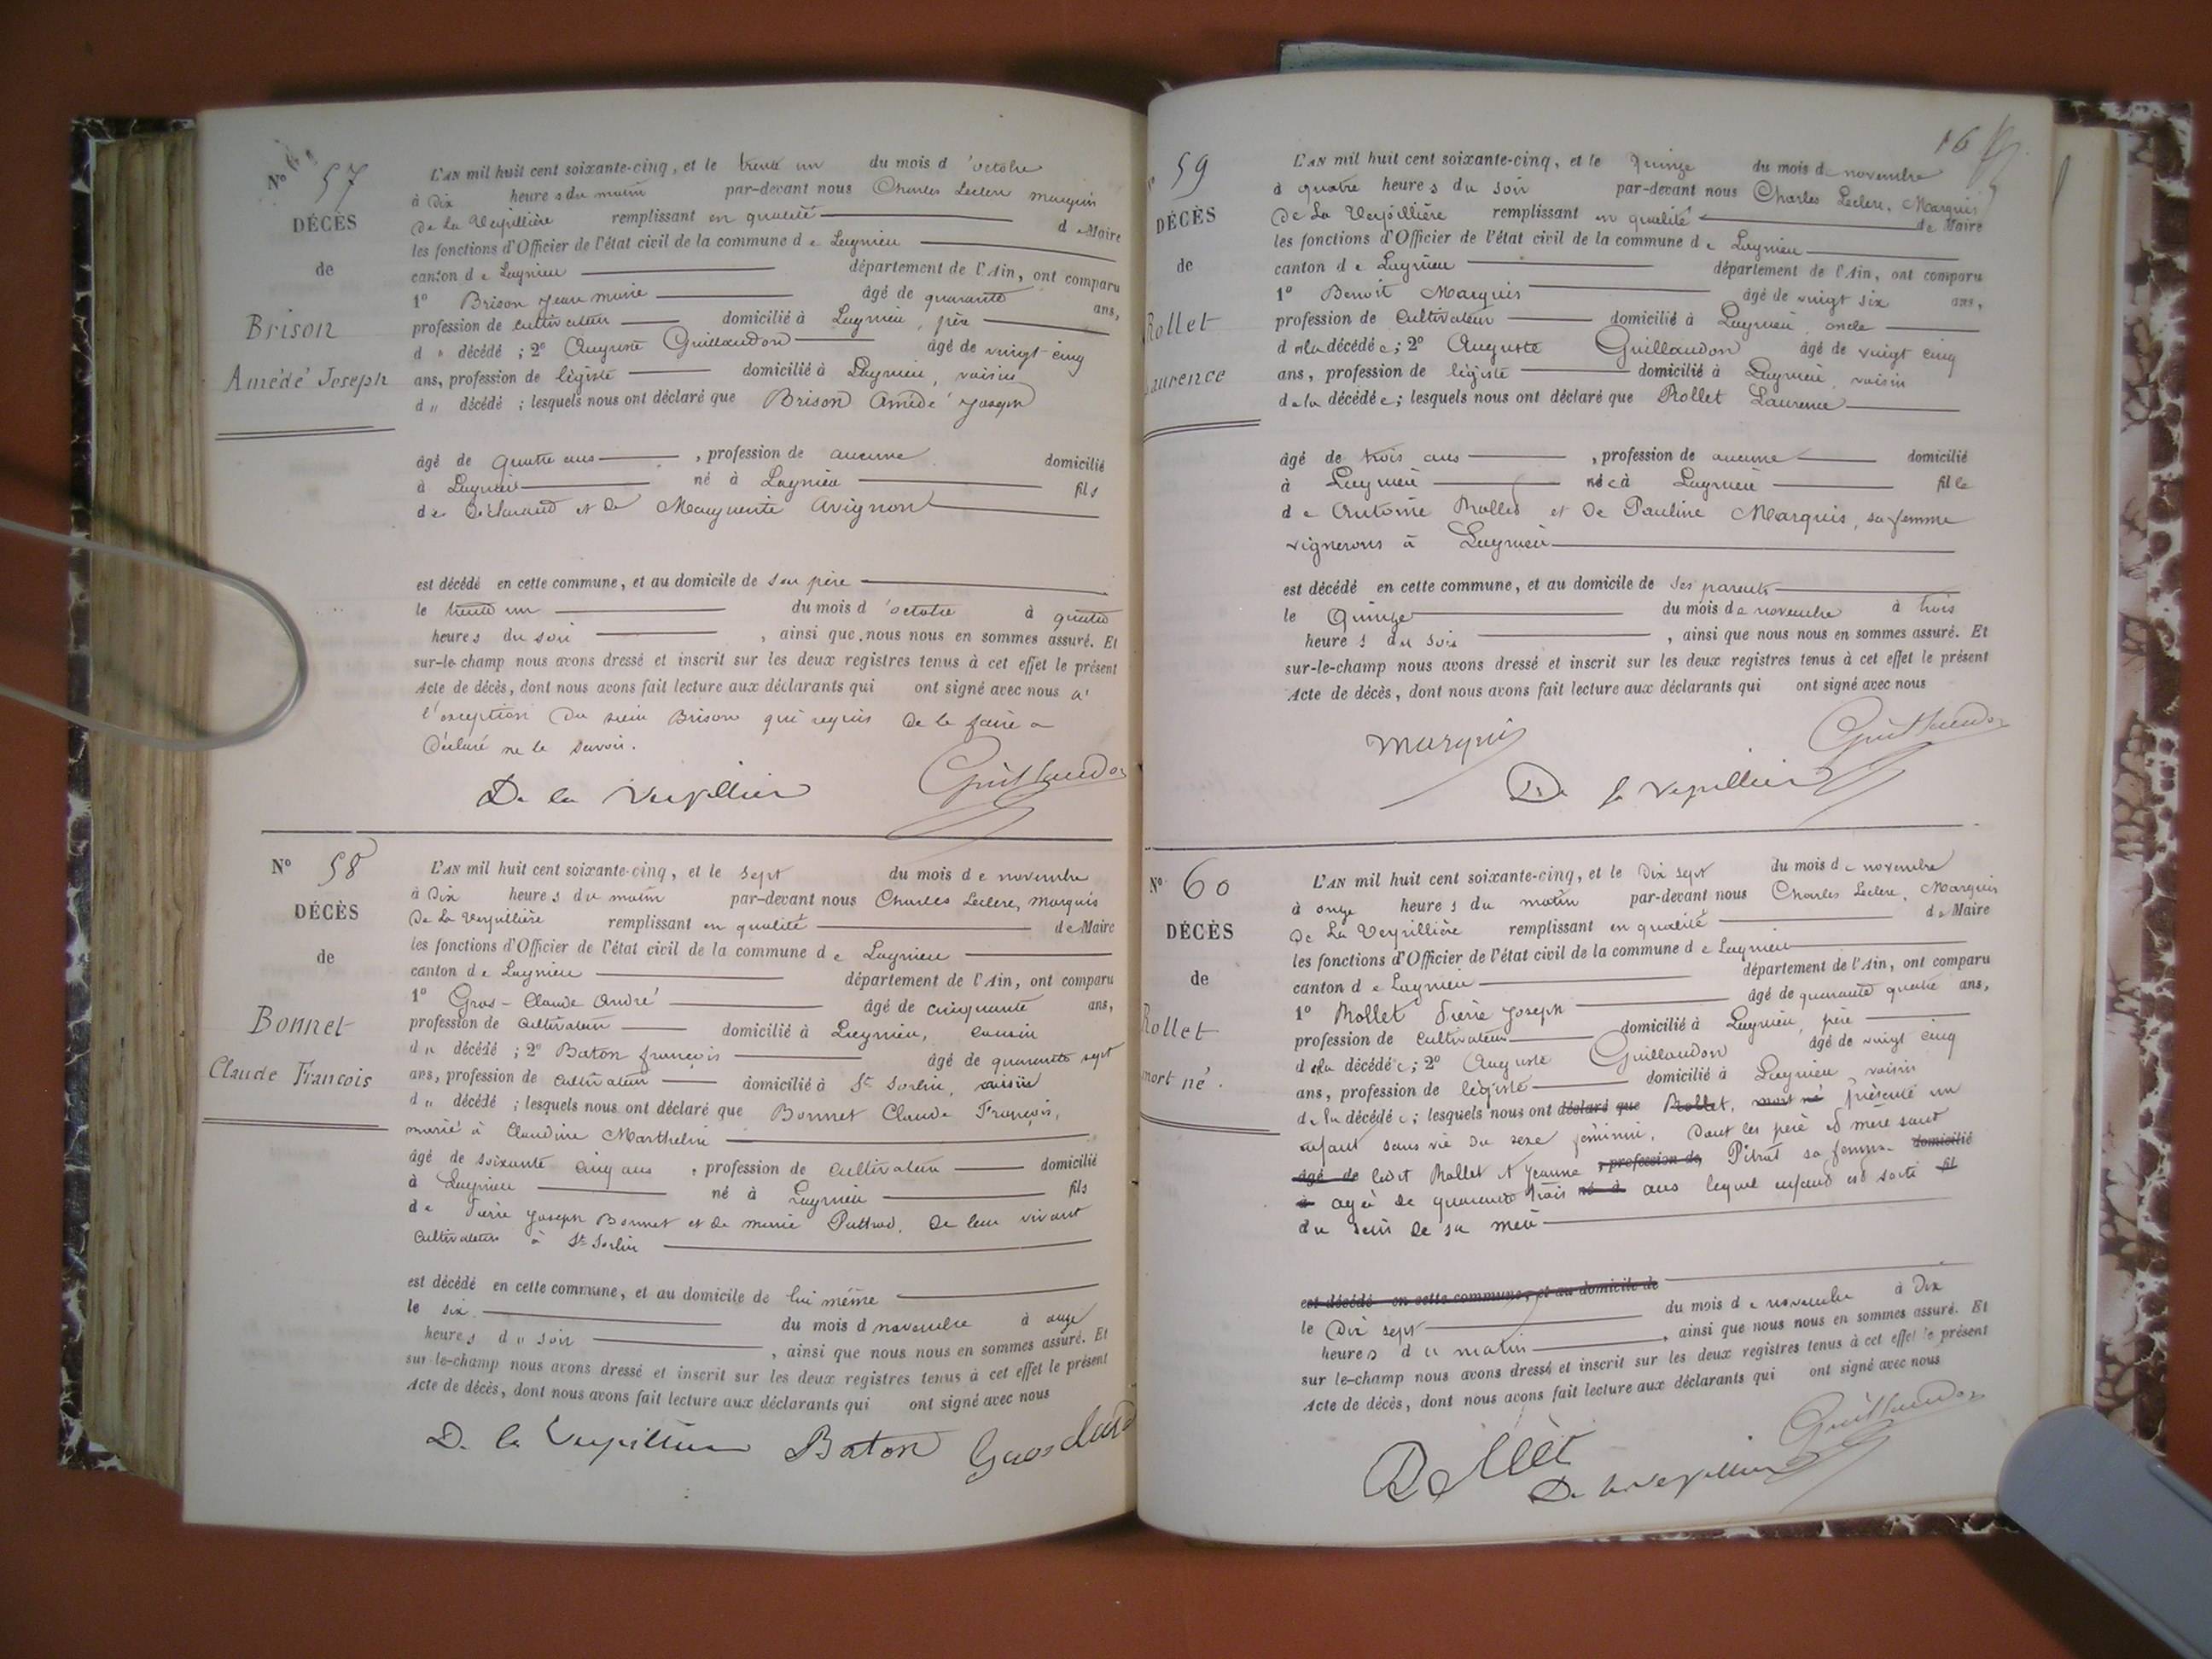 No 57
DÉCÈS
de
Brison
Amédé Joseph
L'AN mil huit cent soixante-cinq, et le trente un du mois d'octobre
à Dix heures du matin par-devant nous Charles Leclerc marquis
De La Verpillière remplissant en qualité de Maire
les fonctions d'Officier de l'état civil de la commune de Lagnieu
canton de Lagnieu département de l'Ain, ont comparu
1o Brison Jean marie âgé de quarante ans,
profession de cultivateur domicilié à Lagnieu, père
d " décédé ; 2o Auguste Guillaudon âgé de vingt cinq
ans, profession de légiste domicilié à Lagnieu, voisin
d " décédé ; lesquels nous ont déclaré que Brison Amédé Joseph
âgé de quatre ans , profession de aucune domicilié
à Lagnieu né à Lagnieu fils
de Déclarand et de Marguerite Avignon
est décédé en cette commune, et au domicile de son père
le trente un du mois d'octobre à quatre
heures du soir , ainsi que nous nous en sommes assuré. Et
sur-le-champ nous avons dressé et inscrit sur les deux registres tenus à cet effet le présent
Acte de décès, dont nous avons fait lecture aux déclarants qui ont signé avec nous à
l'exception du sieur Brison qui requis de le faire a
Déclaré ne le savoir.
De la Verpillière Guillaudon
No 58
DÉCÈS
de
Bonnet
Claude Francois
L'AN mil huit cent soixante-cinq, et le sept du mois de novembre
à Dix heures du matin par-devant nous Charles Leclerc, marquis
De La Verpillière remplissant en qualité de Maire
les fonctions d'Officier de l'état civil de la commune de Lagnieu
canton de Lagnieu département de l'Ain, ont comparu
1o Gros-Claude André âgé de cinquante ans,
profession de cultivateur domicilié à Lagnieu, cousin
d " décédé ; 2o Baton françois âgé de quarante sept
ans, profession de cultivateur domicilié à St Sorlin, voisin
d " décédé ; lesquels nous ont déclaré que Bonnet Claude François,
marié à Claudine Marthelin
âgé de soixante cinq ans , profession de cultivateur domicilié
à Lagnieu né à Lagnieu fils
de Pierre Joseph Bonnet et de marie, de leur vivant
cultivateurs à St Sorlin
est décédé en cette commune, et au domicile de lui même
le six du mois d novembre à onze
heures du soir , ainsi que nous nous en sommes assuré. Et
sur le-champ nous avons dressé et inscrit sur les deux registres tenus à cet effet le présent
Acte de décès, dont nous avons fait lecture aux déclarants qui ont signé avec nous
De la Verpillière Baton Grosclaude
16
59
DÉCÈS
de
Rollet
Laurence
L'AN mil huit cent soixante-cinq, et le Quinze du mois de novembre
à quatre heures du soir par-devant nous Charles Leclerc, Marquis
De La Verpillière remplissant en qualité de Maire
les fonctions d'Officier de l'état civil de la commune de Lagnieu
canton de Lagnieu département de l'Ain, ont comparu
1o Benoit Marquis âgé de vingt six ans,
profession de cultivateur domicilié à Lagnieu, oncle
de la décédée ; 2o Auguste Guillaudon âgé de vingt cinq
ans, profession de légiste domicilié à Lagnieu, voisin
de la décédée ; lesquels nous ont déclaré que Rollet Laurence
âgé de trois ans , profession de aucune domicilié
à Lagnieu née à Lagnieu fille
de Antoine Rollet et de Pauline Marquis, sa femme
vignerons à Lagnieu
est décédé en cette commune, et au domicile de ses parents
le Quinze du mois de novembre à trois
heures du soir , ainsi que nous nous en sommes assuré. Et
sur-le-champ nous avons dressé et inscrit sur les deux registres tenus à cet effet le présent
Acte de décès, dont nous avons fait lecture aux déclarants qui ont signé avec nous
Marquis Guillaudon
De la Verpillière
No 60
DÉCÈS
de
Rollet
mort né.
L'AN mil huit cent soixante-cinq, et le Dix sept du mois de novembre
à onze heures du matin par-devant nous Charles Leclerc, Marquis
De La Verpillière remplissant en qualité de Maire
les fonctions d'Officier de l'état civil de la commune de Lagnieu
canton de Lagnieu département de l'Ain, ont comparu
1o Rollet Pierre Joseph âgé de quarante quatre ans,
profession de cultivateur domicilié à Lagnieu, père
de la décédée ; 2o Auguste Guillaudon âgé de vingt cinq
ans, profession de légiste domicilié à Lagnieu voisin
de la décédée ; lesquels nous ont déclaré que Rollet, mort né présenté un
enfant sans vie du sexe féminin, Dont les père et mère sont
âgé de ledit Rollet et Jeanne , profession de, Pitrat sa femme domicilié
à agée de quarante trois né à ans lequel enfant est sorti fil
du sein de sa mère
est décédé en cette commune, et au domicile de
le Dix sept du mois de novembre à Dix
heures du matin , ainsi que nous nous en sommes assuré. Et
sur le-champ nous avons dressé et inscrit sur les deux registres tenus à cet effet le présent
Acte de décès, dont nous avons fait lecture aux déclarants qui ont signé avec nous
Rollet Guillaudon
De la Verpillière